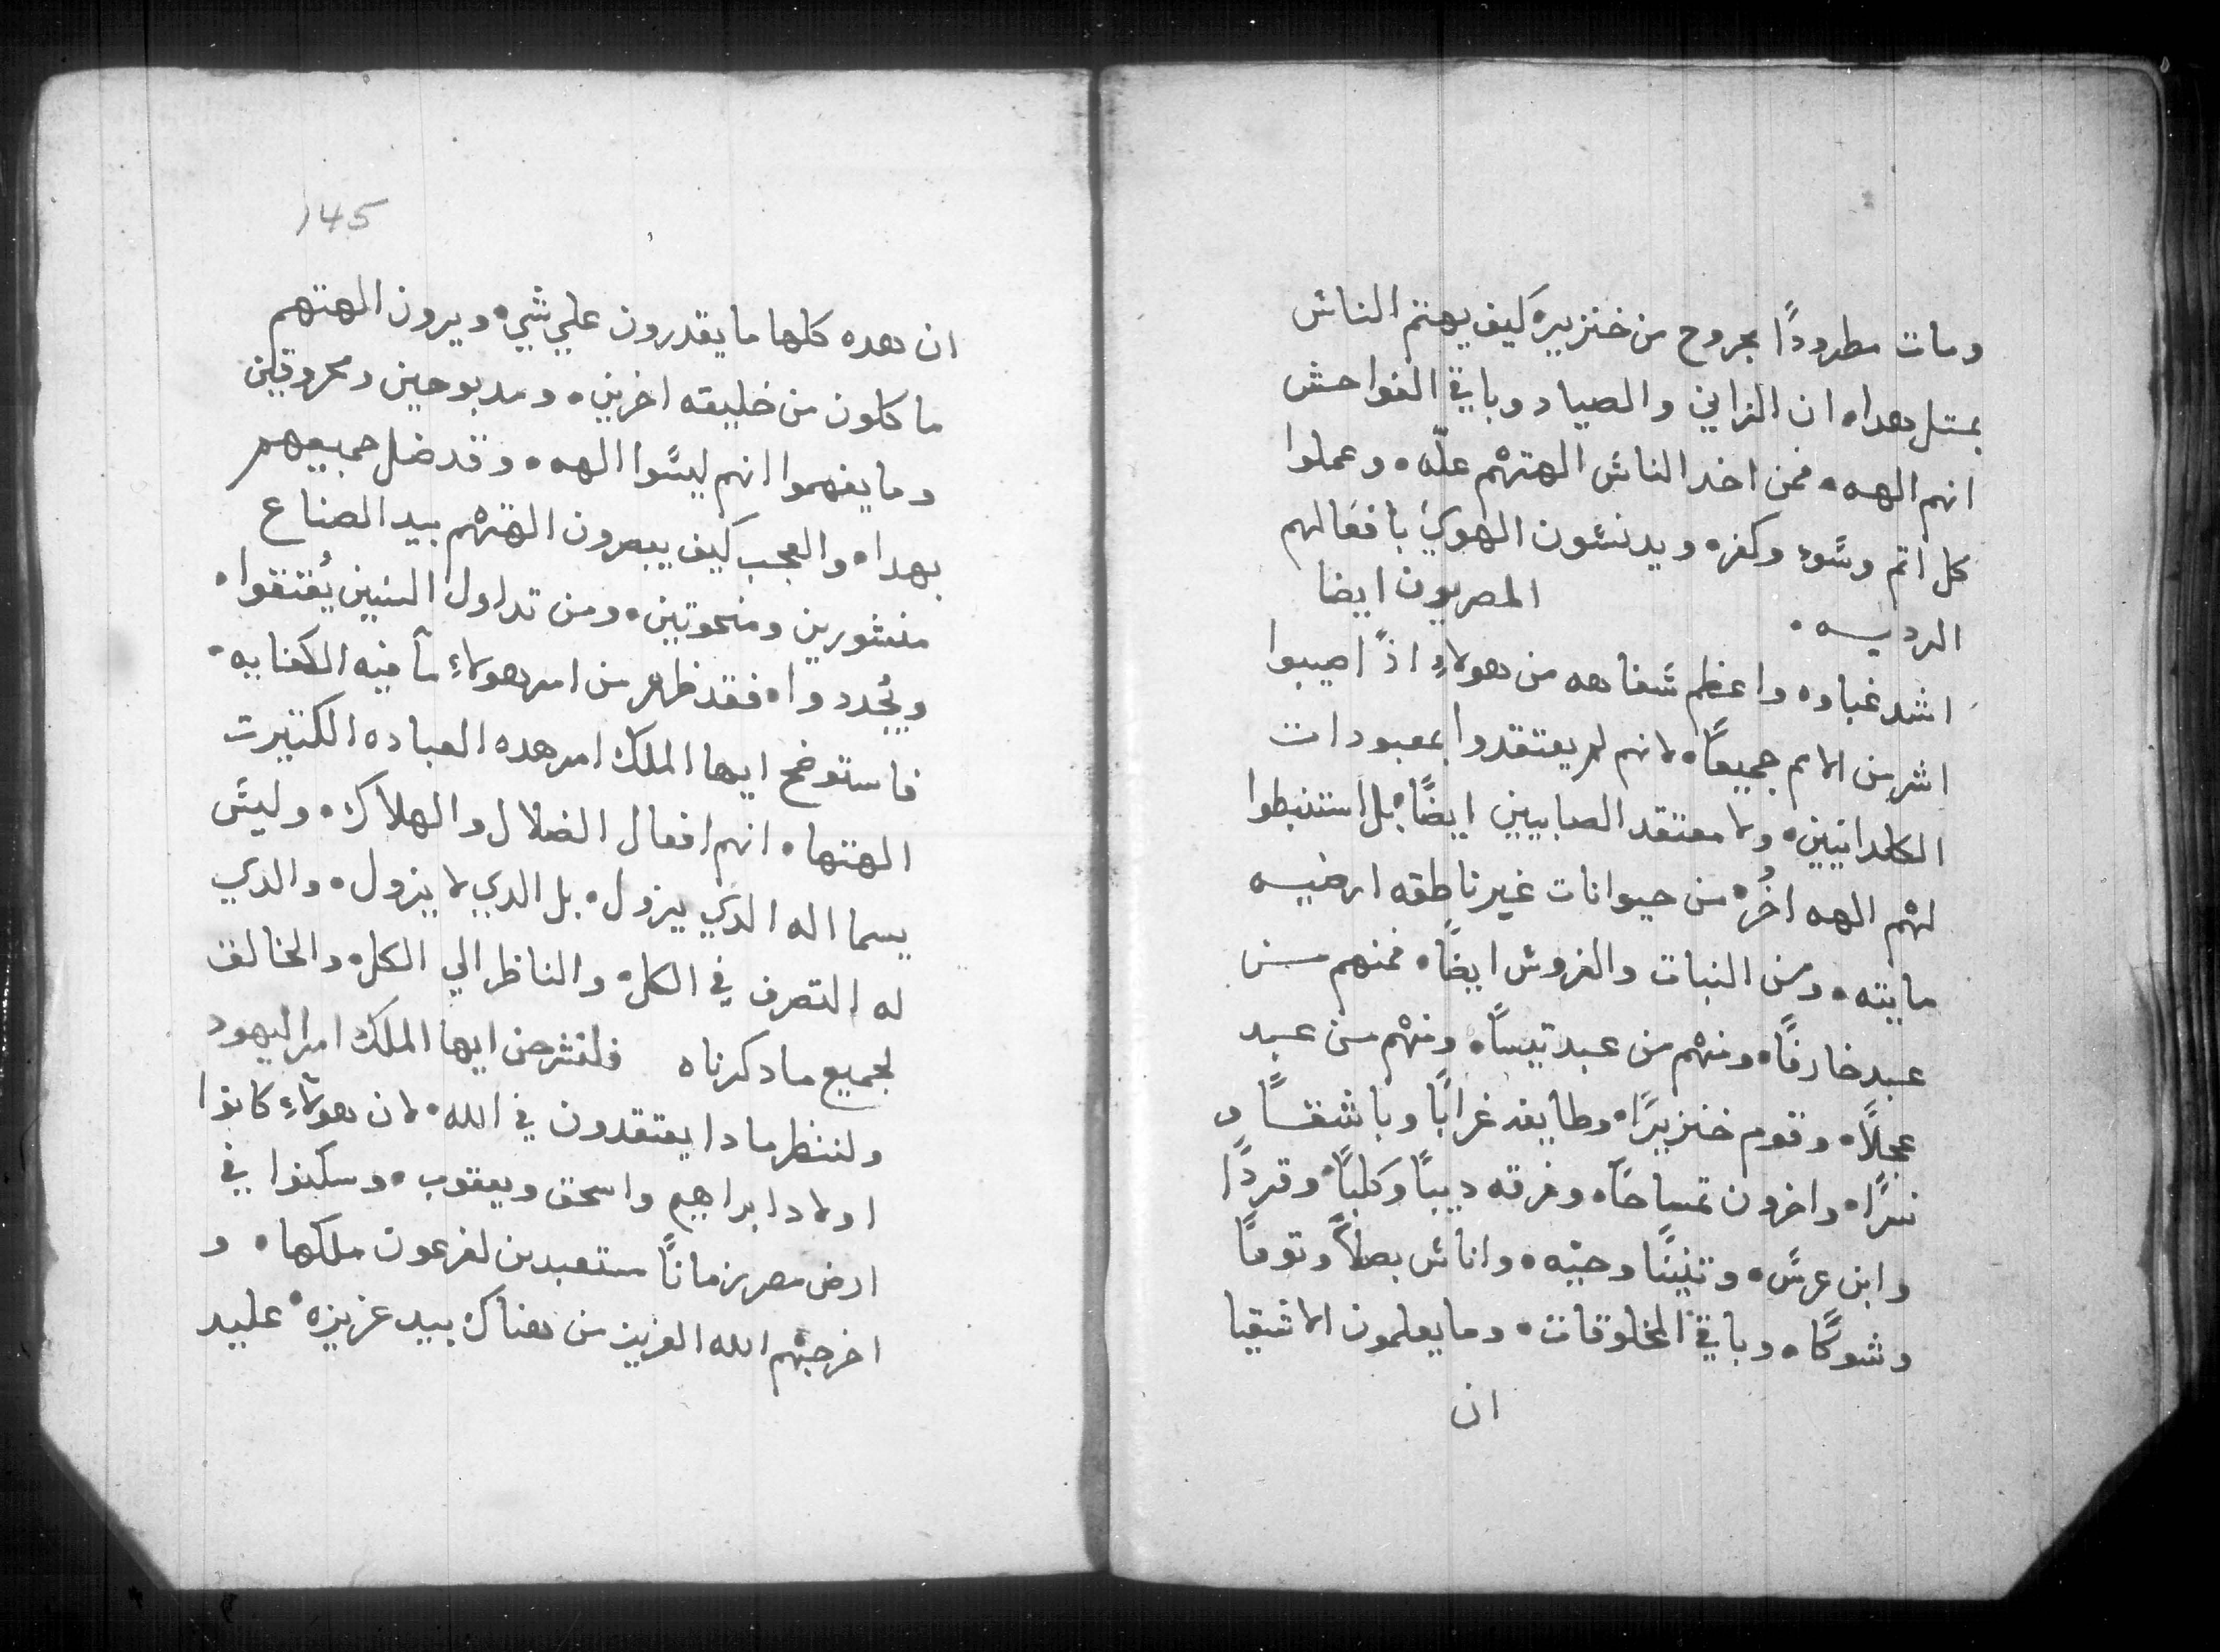 ومات مطرودًا بجروح من خنزيره كيف يهتم الناش
بمتل هداه ان الزاني والصياد وباقي الفواحش
انهم الهه • فمن اخد الناش الهتهم علّه • وعملوا
كل اتم وسًوء وكفره ويدنسٌون الهوي بأفعالهم
الرديه • المصريون ايضا
اشد غباوه واعظم شفاهه من هولاءِ اذًا صيبوا
اشر من الامم جميعًا • لانهم لم يعتقدوا بمعبودات
الكلدانيين • ولا معتقد الصابيين ايضًا • بل استنبطوا
لهم الهه اخُر • من حيوانات غير ناطقه ارضيه
مايته • ومن النبات والغروش ايضًا • فمنهم من
عبد خاروفًا • ومنهم من عبد تيسًا • ومنهم من عبد
عجلًا • وقوم خنزيرًا • وطايفه غرابًا وباشقًا و
نسرًا • واخرون تمساحًا • وفرقه ديبًا وكلبًا وقردًا
وابن عرسً • وتنينًا وحيّه • واناش بصلًا وتومًا
وشوكًا • وباقي المخلوقات • وما يعلمون الاشقيا
ان
145
ان هده كلها ما يقدرون علي شي • ويرون الهتهم
ماكلون من خليقه اخرين • ومدبوحين ومحروقين
وما يفهموا انهم ليسًوا الهه • وقد ضل جميعهم
بهدا • والعجب كيف يبصرون الهتهم بيد الصناع
منشورين ومنحوتين • ومن تداول السنين يُعتقوا •
ويُجددوا • فقد ظهر من امر هولاءِ مآ فيه الكفايه •
فاستوضح ايها الملك امر هده العباده الكتيرت
الهتها • انهم افعال الضلال والهلاك • وليسً
يسما اله الدي يزول • بل الدي لا يزول • والدي
له التصرف في الكل • والناظر الي الكل • والخالق
لجميع ما دكرناه فلنشرحن ايها الملك امر اليهود
ولننظر مادا يعتقدون في الله • لان هولآءِ كانوا
اولاد ابراهيم واسحق ويعقوب • وسكنوا في
ارض مصر زمانًا مستعبدين لفرعون ملكها • و
اخرجهم الله العزيز من هناك بيد عزيزه • عليد